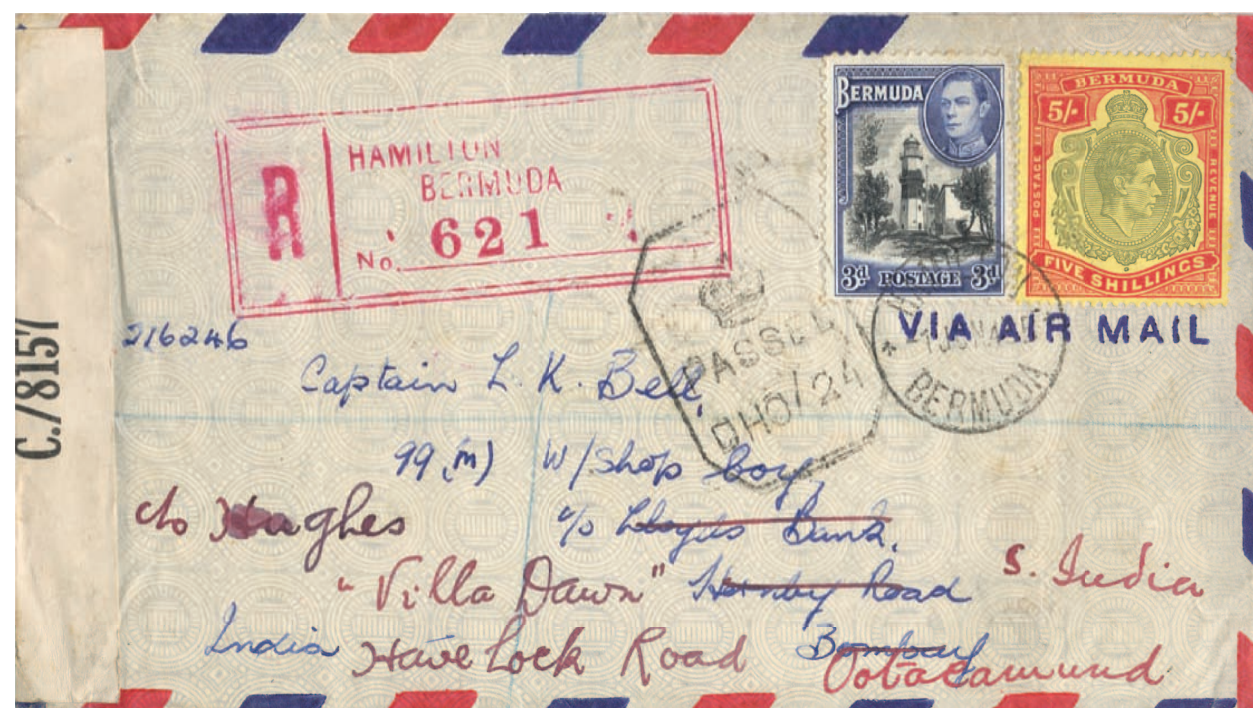 C./8157
R
HAMILTON
BERMUDA
No. 621
BERMUDA
3d POSTAGE 3d
BERMUDA
5/- 5/-
POSTAGE REVENUE
FIVE SHILLINGS
VIA AIR MAIL
BERMUDA
PASSED
DHO/24
216246
Captain L. K. Bell,
99 (m) W/Shop Coy,
c/o Hughes
c/o Lloyds Bank,
"Villa Dawn" Hornby Road
S. India
India Havelock Road Bombay
Ootacamund